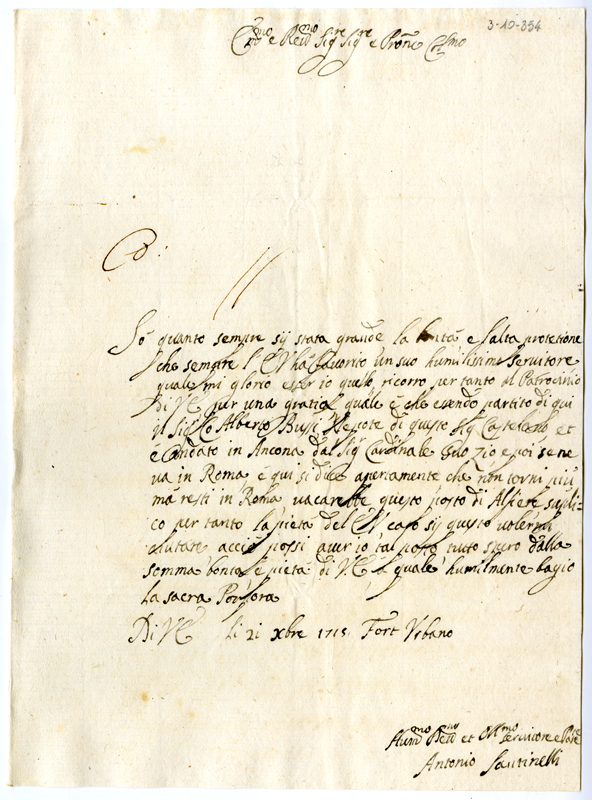 3-10-354
E.mo e Rev.mo Sig.re Sig.re e Prone Col.mo
Sò quanto sempre sij stata grande la bontà e l'alta protetione
che sempre l'E.V. ha favorito un suo humilissimo servitore
quale mi glorio esser io questo, ricorro per tanto al Patrocinio
di V.E. per una gratia quale è che essendo partito di qui
il Sig.r Co. Alberto Bussi Nepote di questo Sig. Castellano et
è andato in Ancona dal Sig.r Cardinale suo zio e poi se ne
va in Roma, e qui si dice apertamente che non torni più
mà resti in Roma vacarebbe questo posto di Alfiere supli=
co per tanto la pietà del E.V. caso sij questo volermi
aiutare acciò possi aver io tal posto tutto spero dalla
somma bontà e pietà di V.E. a quale humilmente bagio
la sacra Porpora
Di V.E. li 21 Xbre 1715 Fort Urbano
Hum.mo Dev.mo et Obl.mo Servitore
Antonio Santinelli